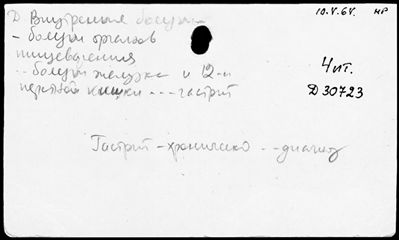 D Внутренние болезни
10.V.64. нр
- болезни органов
пищеварения
4 ит.
-- болезни желудка и 12-и
перстной кишки --- гастрит
D 30723
Гастрит - хронический -- диагноз